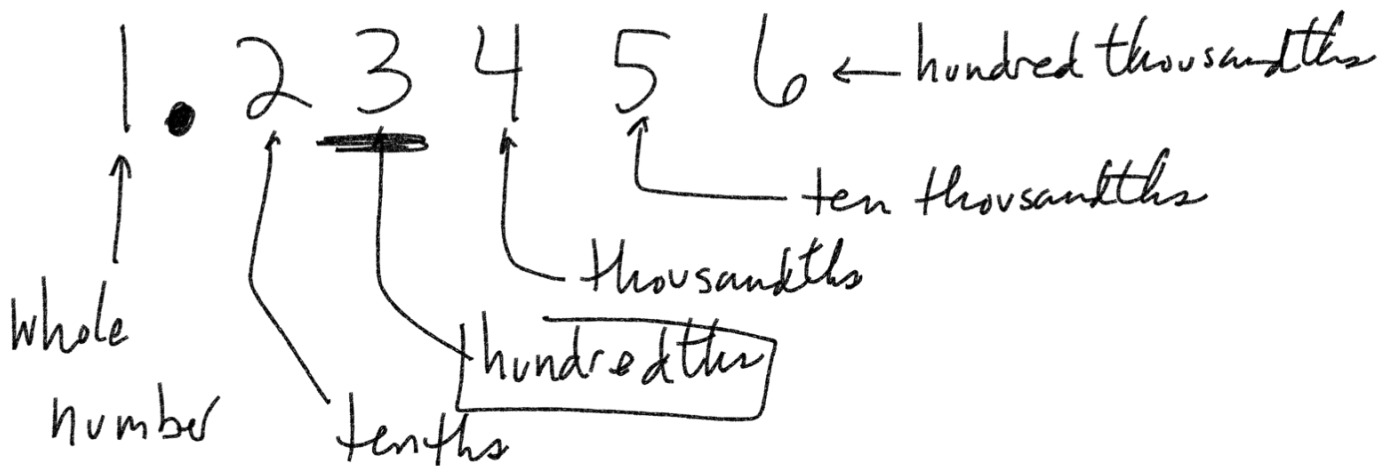 1.23456 ← hundred thousandths
ten thousandths
thousandths
hundredths
whole
number
tenths